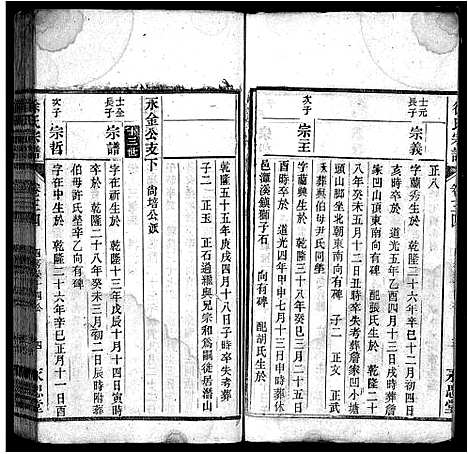 正八
士元長子 宗義
字蘭秀生於 乾隆二十六年辛巳十二月初三日
亥時卒於 道光五年乙酉四月十三日戌時葬詹
家凹山頂東南向有碑 配張氏生於 乾隆二十
八年癸未五月十二日 時卒失考葬詹家凹小塘
頭山脚坐北朝東南向有碑 子二 正文 正武
次子 宗王
字蘭興生於 乾隆三十八年癸巳三月二十五日
時卒於 道光四年甲申七月十三日申時葬休
邑潭溪鎮獅子石 向有碑 配胡氏生於
乾隆五十五年庚戌四月十八日子時卒失考葬
子二 正玉 正石過繼與兄宗和為嗣徙居潛山
永金公支下 尚培公派
三世
士全長子 宗譜
字在祈生於 乾隆十三年戊辰十月十四日寅時
卒於 乾隆二十八年癸未三月初二日辰時附葬
伯母許氏坐辛乙向有碑
次子 宗哲
字在中生於 乾隆二十六年辛巳正月十一日酉